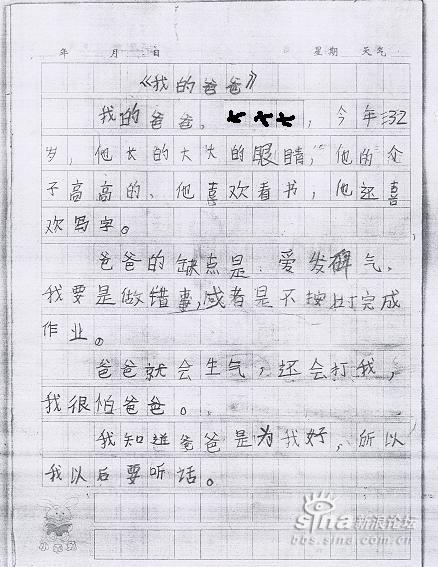 年 月 日 星期 天气
《我的爸爸》
我的爸爸。，今年32
岁，他长的大大的眼睛，他的个
子高高的、他喜欢看书，他还喜
欢写字。
爸爸的缺点是.爱发碑气，
我要是做错事，或者是不按时完成
作业。
爸爸就会生气，还会打我，
我很怕爸爸。
我知道爸爸是为我好，所以
我以后要听话。
sina 新浪论坛
bbs.sina.com.cn